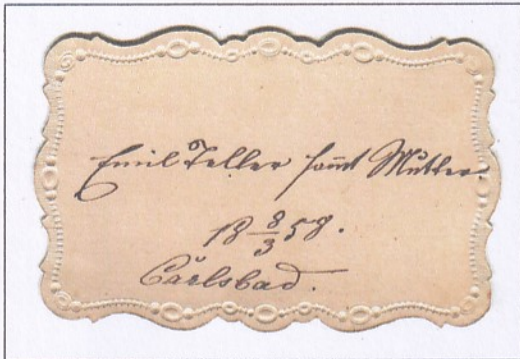 Emil Teller samt Mutter.
18 8/3 58.
Carlsbad.